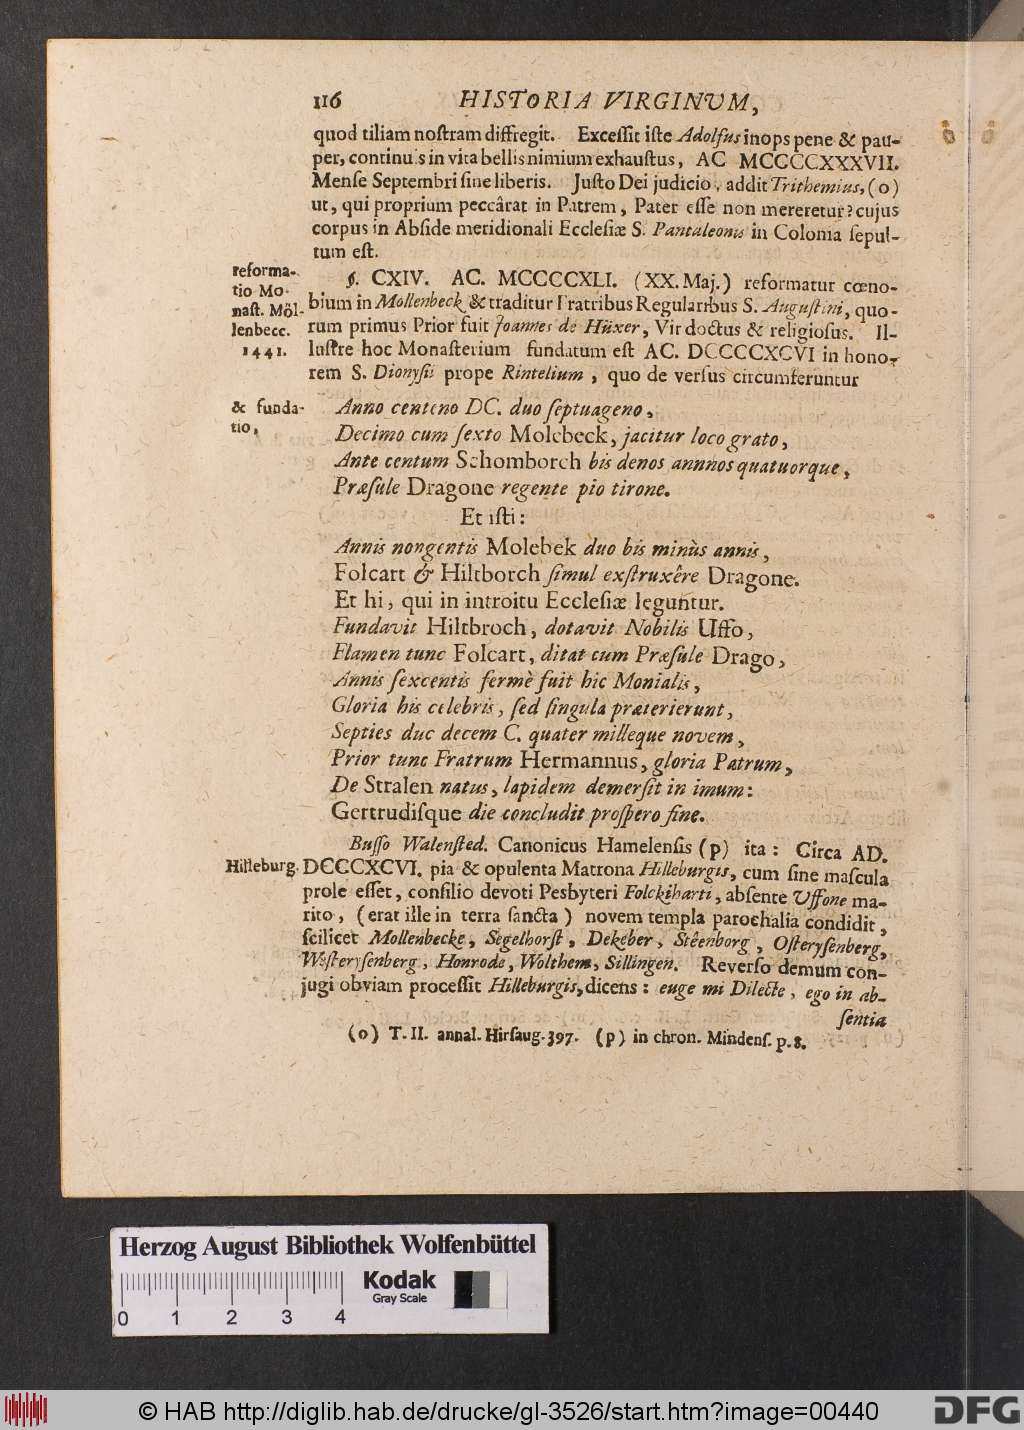 116 HISTORIA VIRGINUM,
quod tiliam nostram diffregit. Excessit iste Adolfus inops pene & pau-
per, continuis in vita bellis nimium exhaustus, AC MCCCCXXXVII.
Mense Septembri sine liberis. Justo Dei judicio, addit Trithemius, (o)
ut, qui proprium peccârat in Patrem, Pater esse non mereretur? cujus
corpus in Abside meridionali Ecclesiæ S. Pantaleonis in Colonia sepul-
tum est.
reforma-
tio Mo-
nast. Möl-
lenbecc.
1441.
§. CXIV. AC. MCCCCXLI. (XX. Maj.) reformatur cœno-
bium in Möllenbeck & traditur Fratribus Regularibus S. Augustini, quo-
rum primus Prior fuit Joannes de Hüxer, Vir doctus & religiosus. Il-
lustre hoc Monasterium fundatum est AC. DCCCCXCVI in hono-
rem S. Dionysii prope Rintelium, quo de versus circumferuntur
& funda-
tio,
Anno centeno DC. duo septuageno,
Decimo cum sexto Molebeck, jacitur loco grato,
Ante centum Schomborch bis denos annnos quatuorque,
Præsule Dragone regente pio tirone.
Et isti:
Annis nongentis Molebek duo bis minùs annis,
Folcart & Hiltborch simul exstruxêre Dragone.
Et hi, qui in introitu Ecclesiæ leguntur.
Fundavit Hiltbroch, dotavit Nobilis Uffo,
Flamen tunc Folcart, ditat cum Præsule Drago,
Annis sexcentis fermè fuit hic Monialis,
Gloria his celebris, sed singula præterierunt,
Septies duc decem C. quater milleque novem,
Prior tunc Fratrum Hermannus, gloria Patrum,
De Stralen natus, lapidem demersit in imum:
Gertrudisque die concludit prospero fine.
Busso Walensted. Canonicus Hamelensis (p) ita: Circa AD.
Hilleburg. DCCCXCVI. pia & opulenta Matrona Hilleburgis, cum sine mascula
prole esset, consilio devoti Pesbyteri Folckiharti, absente Uffone ma-
rito, (erat ille in terra sancta) novem templa parochalia condidit,
scilicet Mollenbecke, Segelhorst, Dekeber, Stêenborg, Osterysenberg,
Westerysenberg, Honrode, Wolthem, Sillingen. Reverso demum con-
jugi obviam processit Hilleburgis, dicens: euge mi Dilecte, ego in ab-
sentia
(o) T. II. annal. Hirsaug. 397. (p) in chron. Mindens. p. 8.
Herzog August Bibliothek Wolfenbüttel
Kodak
Gray Scale
0 1 2 3 4
© HAB http://diglib.hab.de/drucke/gl-3526/start.htm?image=00440
DFG